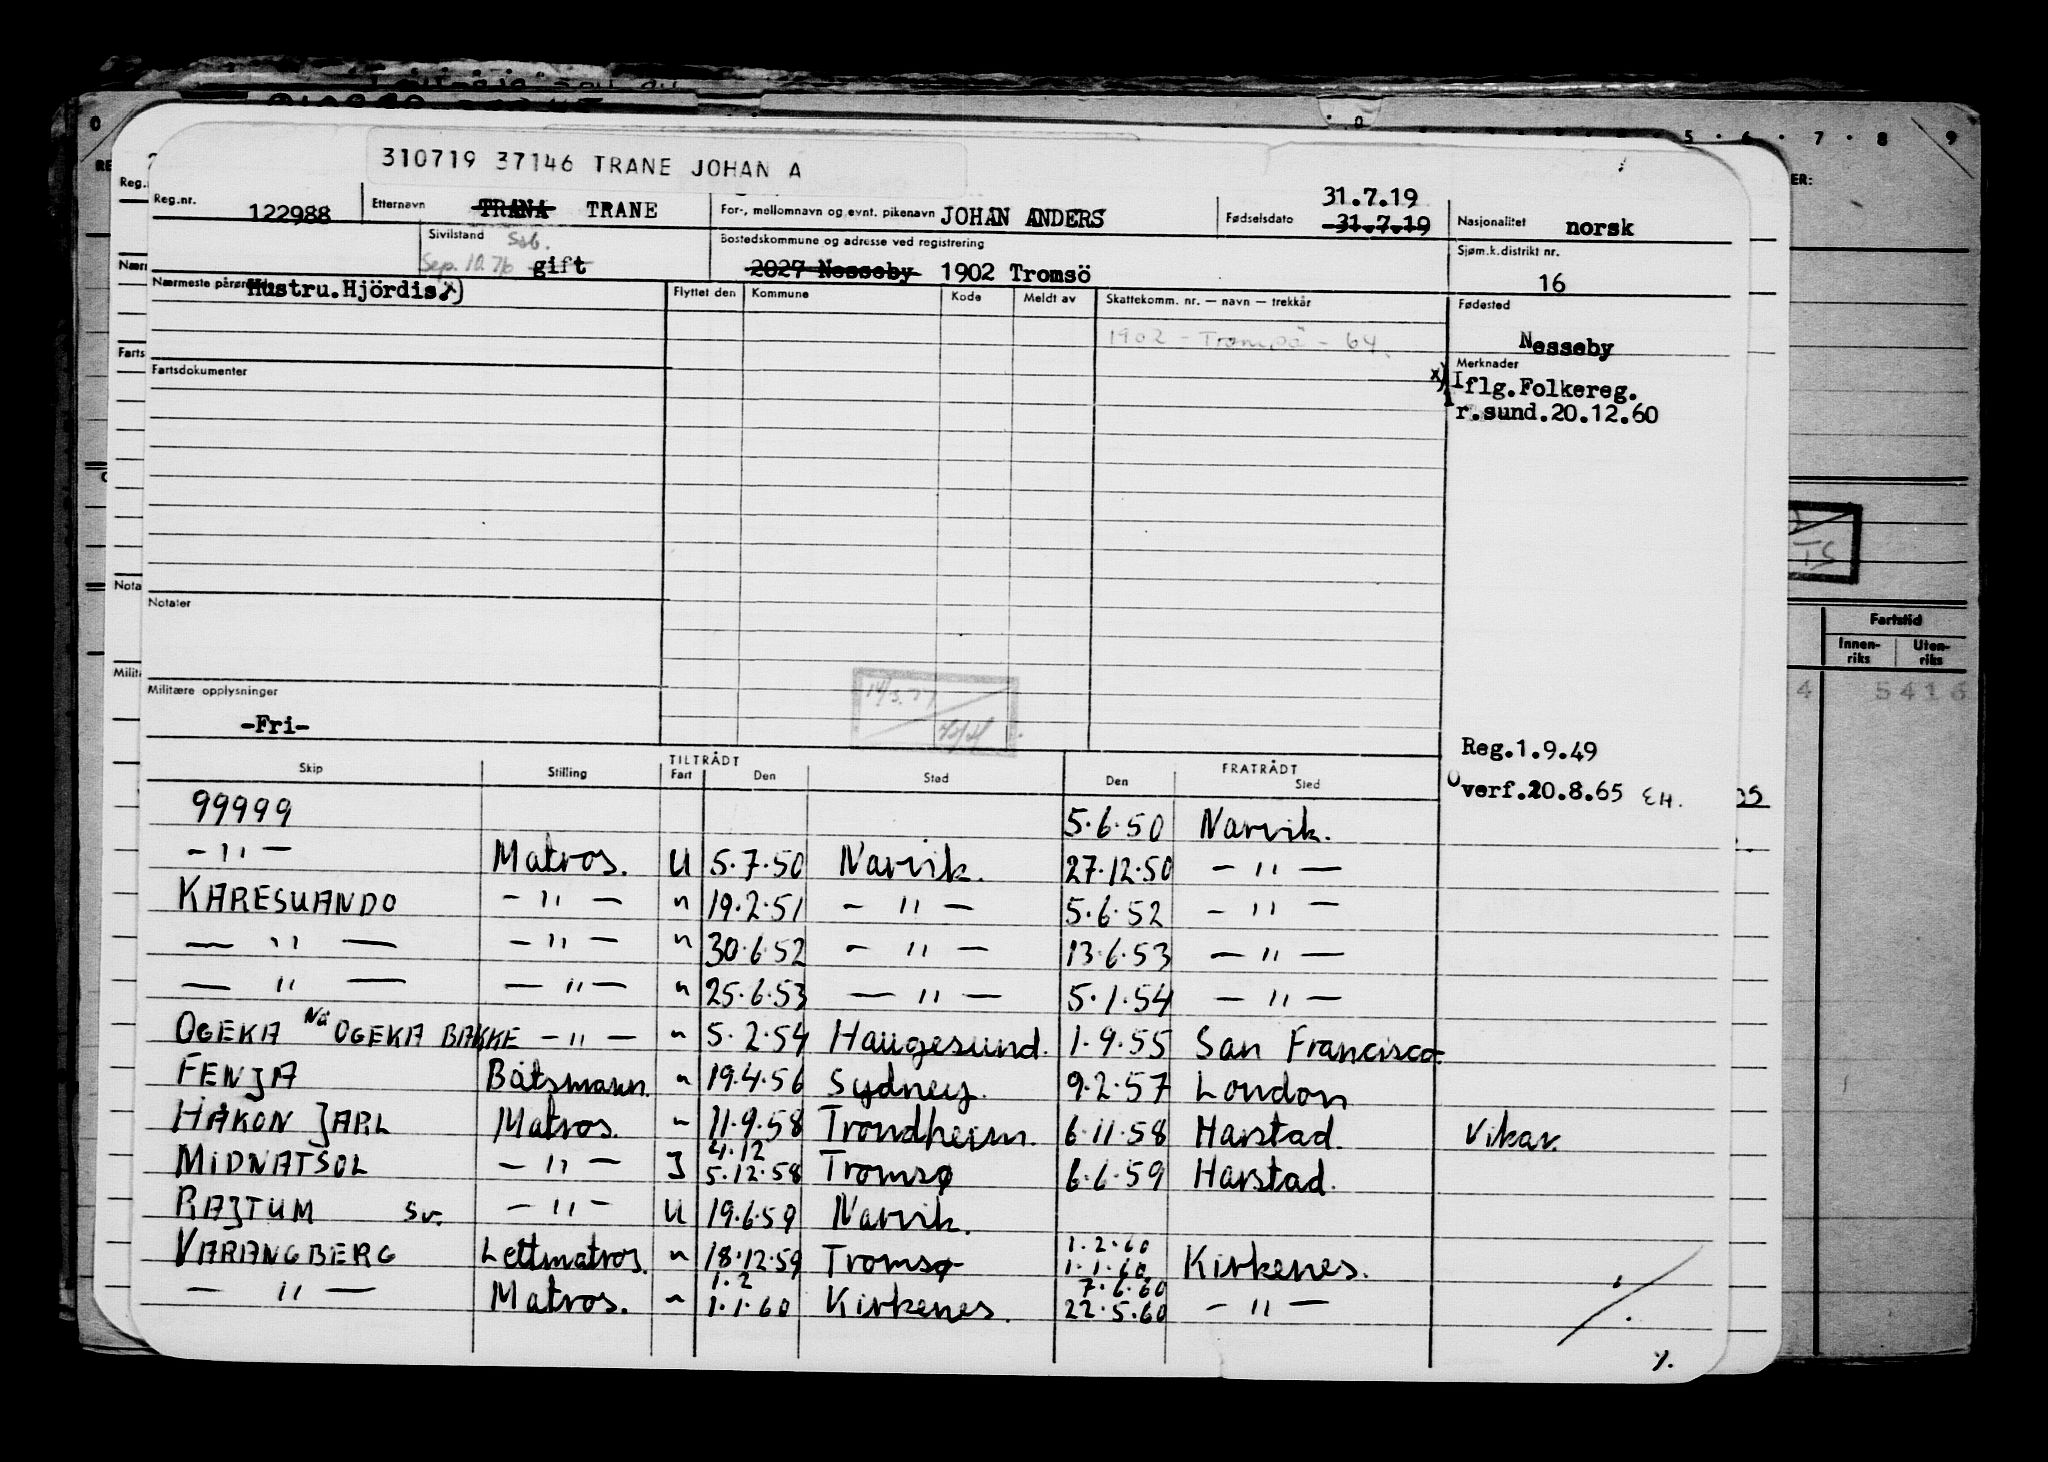 310719 37146 TRANE JOHAN A
Reg.nr. 122988 Etternavn TRANA TRANE For-, mellomnavn og evnt. pikenavn JOHAN ANDERS Fødselsdato 31.7.19 31.7.19 Nasjonalitet norsk
Sivilstand Ssb. Sep. 10.76 gift Bostedskommune og adresse ved registrering 2027 Nesseby 1902 Tromsö Sjøm.k.distrikt nr. 16
Nærmeste pårør Hustru.Hjördis. x) Flyttet den Kommune Kode Meldt av Skattekomm. nr. — navn — trekkår Fødested
1902 - Tromsö - 64. Nesseby
Fartsdokumenter Merknader
x) Iflg.Folkereg.
r.sund.20.12.60
Notater
Militære opplysninger
-Fri-
14/3.77
Reg.1.9.49
verf.20.8.65 EH.
TILTRÅDT FRATRÅDT
Skip Stilling Fart Den Sted Den Sted
99999 5.6.50 Narvik.
- " - Matros. U 5.7.50 Narvik. 27.12.50 - " -
KARESUANDO - " - " 19.2.51 - " - 5.6.52 - " -
- " - - " - " 30.6.52 - " - 13.6.53 - " -
- " - - " - " 25.6.53 - " - 5.1.54 - " -
OGEKA Nå OGEKA BAKKE - " - " 5.2.54 Haugesund. 1.9.55 San Francisco
FENJA Båtsmann. " 19.4.56 Sydney. 9.2.57 London
HÅKON JARL Matros. " 11.9.58 Trondheim. 6.11.58 Harstad. Vikar.
MIDNATSOL - " - J 4.12 5.12.58 Tromsø 6.6.59 Harstad.
RAJTUM sv. - " - U 19.6.59 Narvik.
VARANGBERG Lettmatros. " 18.12.59 Tromsø 1.2.60 1.1.60 Kirkenes.
- " - Matros. " 1.2 1.1.60 Kirkenes. 7.6.60 22.5.60 - " -
Reg.
Nærn
Farts
Nota
Milit
5 . 6 . 7 . 8 . 9
ER:
TS
Fartstid
Innen-riks Uten-riks
4 5416